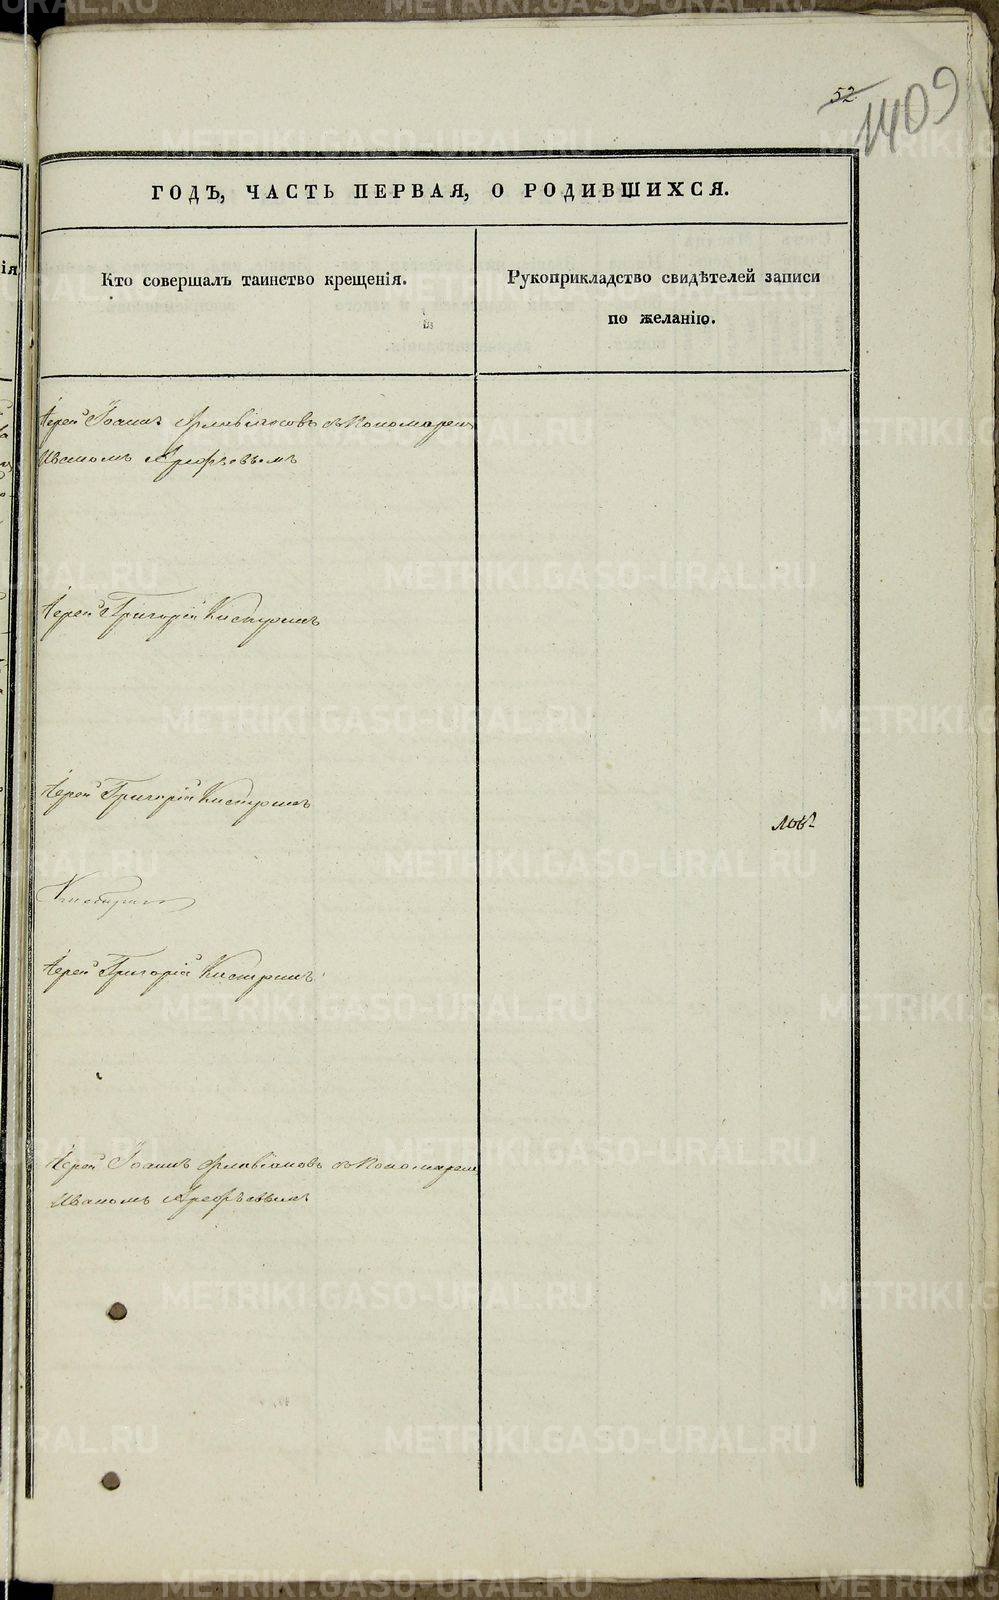 52
1409
ГОДЪ, ЧАСТЬ ПЕРВАЯ, О РОДИВШИХСЯ.
Кто совершалъ таинство крещенія.
Рукоприкладство свидѣтелей записи
по желанію.
Іерей Іоаннъ съ Пономаремъ
Иваномъ Арефьевымъ
Іерей Григорій Кистринъ
Іерей Григорій Кистринъ
Іерей Григорій Кистринъ
Іерей Іоаннъ съ Пономаремъ
Иваномъ Арефьевымъ
METRIKI.GASO-URAL.RU